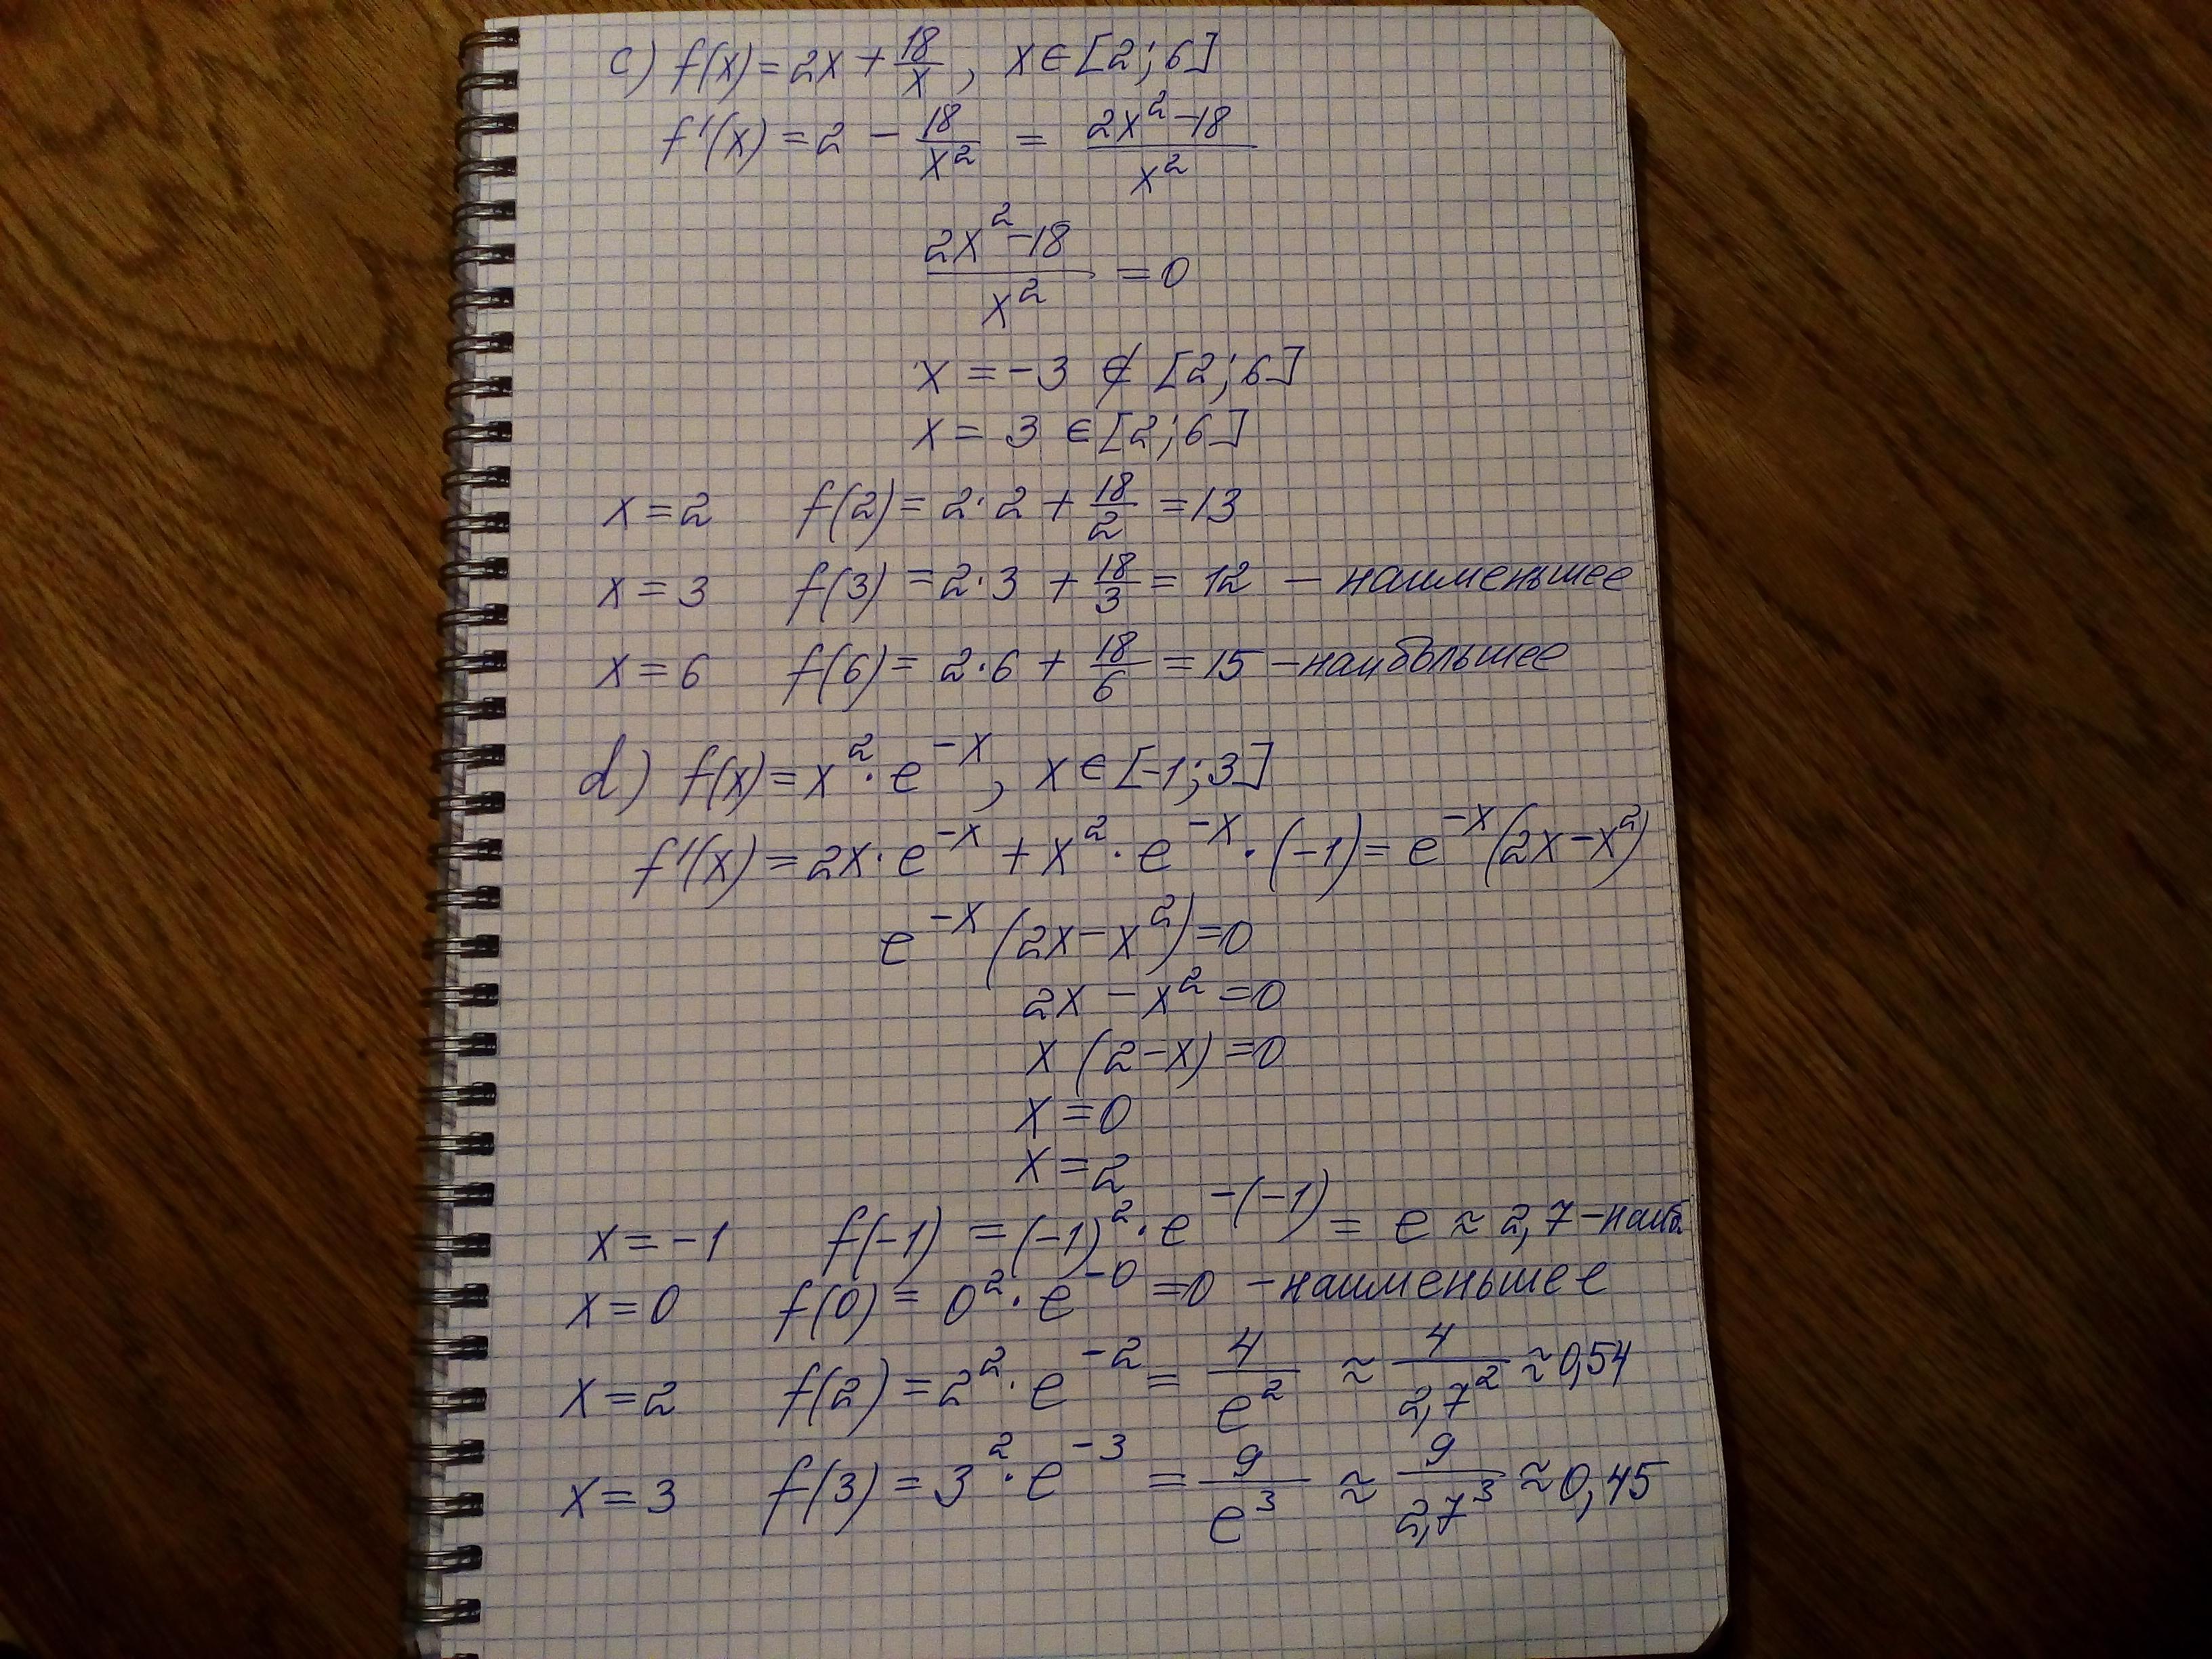 c) f(x) = 2x + 18/x, x ∈ [2; 6]
f'(x) = 2 − 18/x² = (2x² − 18)/x²
(2x² − 18)/x² = 0
x = −3 ∉ [2; 6]
x = 3 ∈ [2; 6]
x = 2 f(2) = 2·2 + 18/2 = 13
x = 3 f(3) = 2·3 + 18/3 = 12 — наименьшее
x = 6 f(6) = 2·6 + 18/6 = 15 — наибольшее
d) f(x) = x²·e^(−x), x ∈ [−1; 3]
f'(x) = 2x·e^(−x) + x²·e^(−x)·(−1) = e^(−x)(2x − x²)
e^(−x)(2x − x²) = 0
2x − x² = 0
x(2 − x) = 0
x = 0
x = 2
x = −1 f(−1) = (−1)²·e^(−(−1)) = e ≈ 2,7 — наиб
x = 0 f(0) = 0²·e^(−0) = 0 — наименьшее
x = 2 f(2) = 2²·e^(−2) = 4/e² ≈ 4/2,7² ≈ 0,54
x = 3 f(3) = 3²·e^(−3) = 9/e³ ≈ 9/2,7³ ≈ 0,45